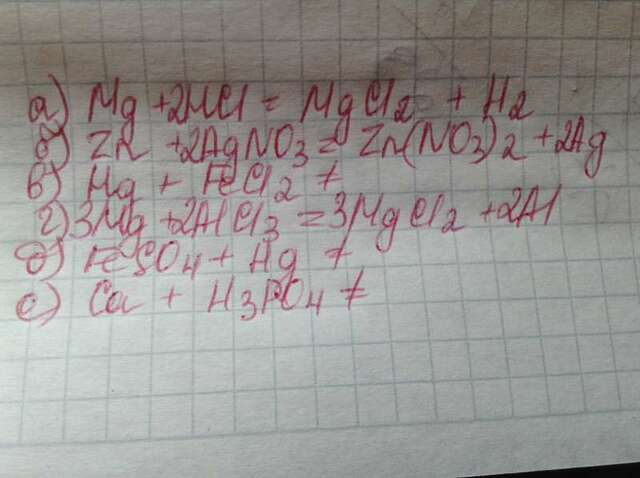 а) Mg + 2HCl = MgCl2 + H2
б) Zn + 2AgNO3 = Zn(NO3)2 + 2Ag
в) Hg + FeCl2 ≠
г) 3Mg + 2AlCl3 = 3MgCl2 + 2Al
д) FeSO4 + Hg ≠
е) Cu + H3PO4 ≠